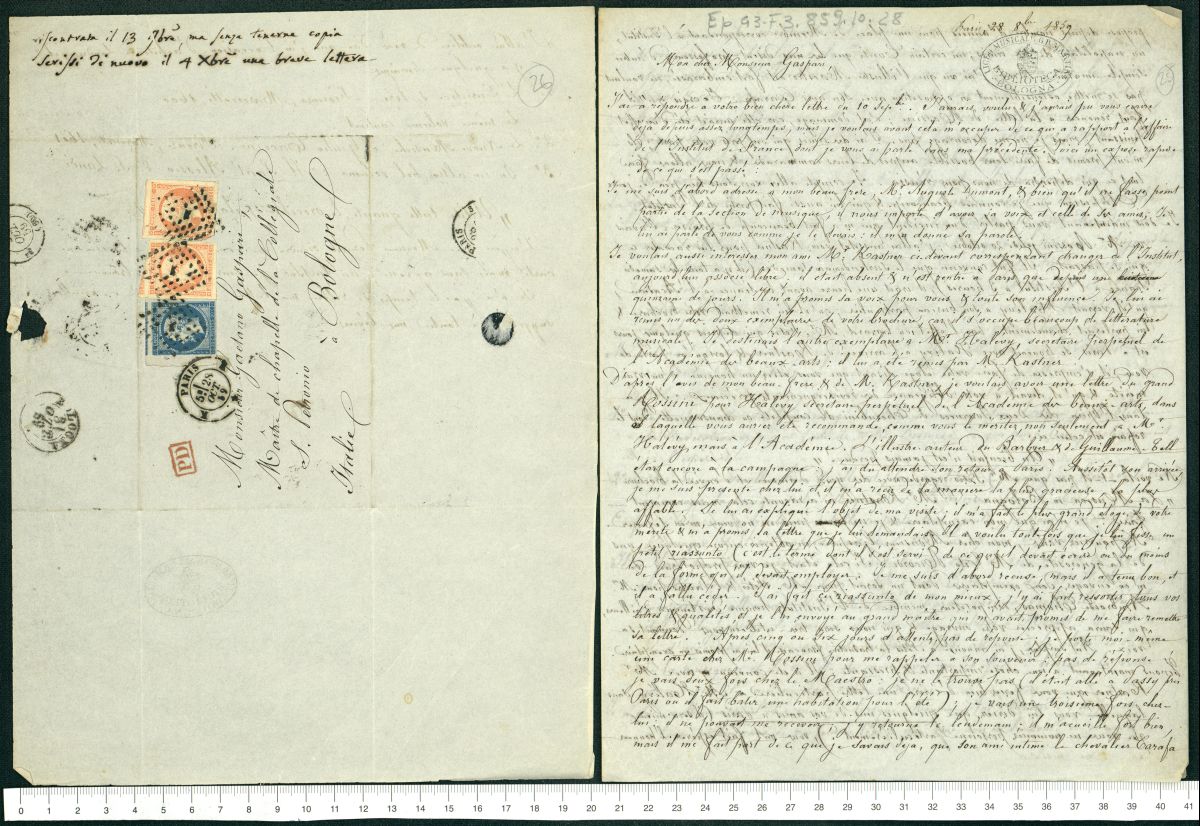 riscontrata il 13 9bre, ma senza tenerne copia
Scrissi di nuovo il 4 Xbre una breve lettera
26
Monsieur Gaetano Gaspari
Maître de chapelle de la Collégiale
S. Petronio à Bologne
Italie
PARIS
28
OCT.
59
PD
PARIS
LUCCA
Ep. 93-F3. 859.10.28
Paris 28 8bre 1859
25
BIBLIOTECA
BOLOGNA
Mon cher Monsieur Gaspari,
J'ai à répondre à votre bien chère lettre du 10 Septbre. J'aurais voulu & j'aurais pu vous écrire
déjà depuis assez longtemps, mais je voulais avant cela m'occuper de ce qui a rapport à l'affaire
de l'Institut de France dont je vous ai parlé dans ma précédente. Voici un exposé rapide
de ce qui s'est passé :
Je me suis d'abord adressé à mon beau frère, Mr. Auguste Dumont, & bien qu'il ne fasse point
partie de la section de musique, il nous importe d'avoir sa voix et celle de ses amis. Je
lui ai parlé de vous comme je le devais : il m'a donné sa parole.
Je voulais aussi intéresser mon ami Mr. Kastner ci-devant correspondant étranger de l'Institut,
aujourd'hui associé libre ; il était absent & n'est rentré à Paris que depuis une
quinzaine de jours. Il m'a promis sa voix pour vous & toute son influence. Je lui ai
remis un des deux exemplaires de votre brochure, car il s'occupe beaucoup de littérature
musicale. Je destinais l'autre exemplaire à Mr. Halévy, secrétaire perpétuel de
l'Académie des beaux-arts ; il lui a été remis par Mr. Kastner.
D'après l'avis de mon beau-frère & de Mr. Kastner je voulais avoir une lettre du grand
Rossini pour Halévy secrétaire perpétuel de l'Académie des beaux-arts, dans
laquelle vous auriez été recommandé comme vous le méritez non seulement à Mr.
Halévy, mais à l'Académie. L'illustre auteur du Barbier & de Guillaume-Tell
était encore à la campagne ; j'ai dû attendre son retour à Paris. Aussitôt son arrivée,
je me suis présenté chez lui et il m'a reçu de la manière la plus gracieuse, la plus
affable. Je lui ai expliqué l'objet de ma visite ; il m'a fait le plus grand éloge de votre
mérite & m'a promis la lettre que je lui demandais. Il a voulu toutefois que je lui fisse un
petit riassunto (c'est le terme dont il s'est servi) de ce qu'il devait écrire ou du moins
de la forme qu'il devait employer. Je me suis d'abord récusé, mais il a tenu bon, et
il a fallu céder. J'ai fait ce riassunto de mon mieux, j'y ai fait ressortir tous vos
titres & qualités et je l'ai envoyé au grand maître qui m'avait promis de me faire remettre
sa lettre. Après cinq ou six jours d'attente, pas de réponse ; je porte moi-même
une carte chez Mr. Rossini pour me rappeler à son souvenir : pas de réponse
je vais deux fois chez le Maestro : je ne le trouve pas (il était allé à Passy près
Paris où il fait bâtir une habitation pour l'été) ; je vais une troisième fois chez
lui, il ne pouvait me recevoir ; j'y retourne le lendemain ; il m'accueille fort bien,
mais il me fait part de ce que je savais déjà, que son ami intime le chevalier Carafa